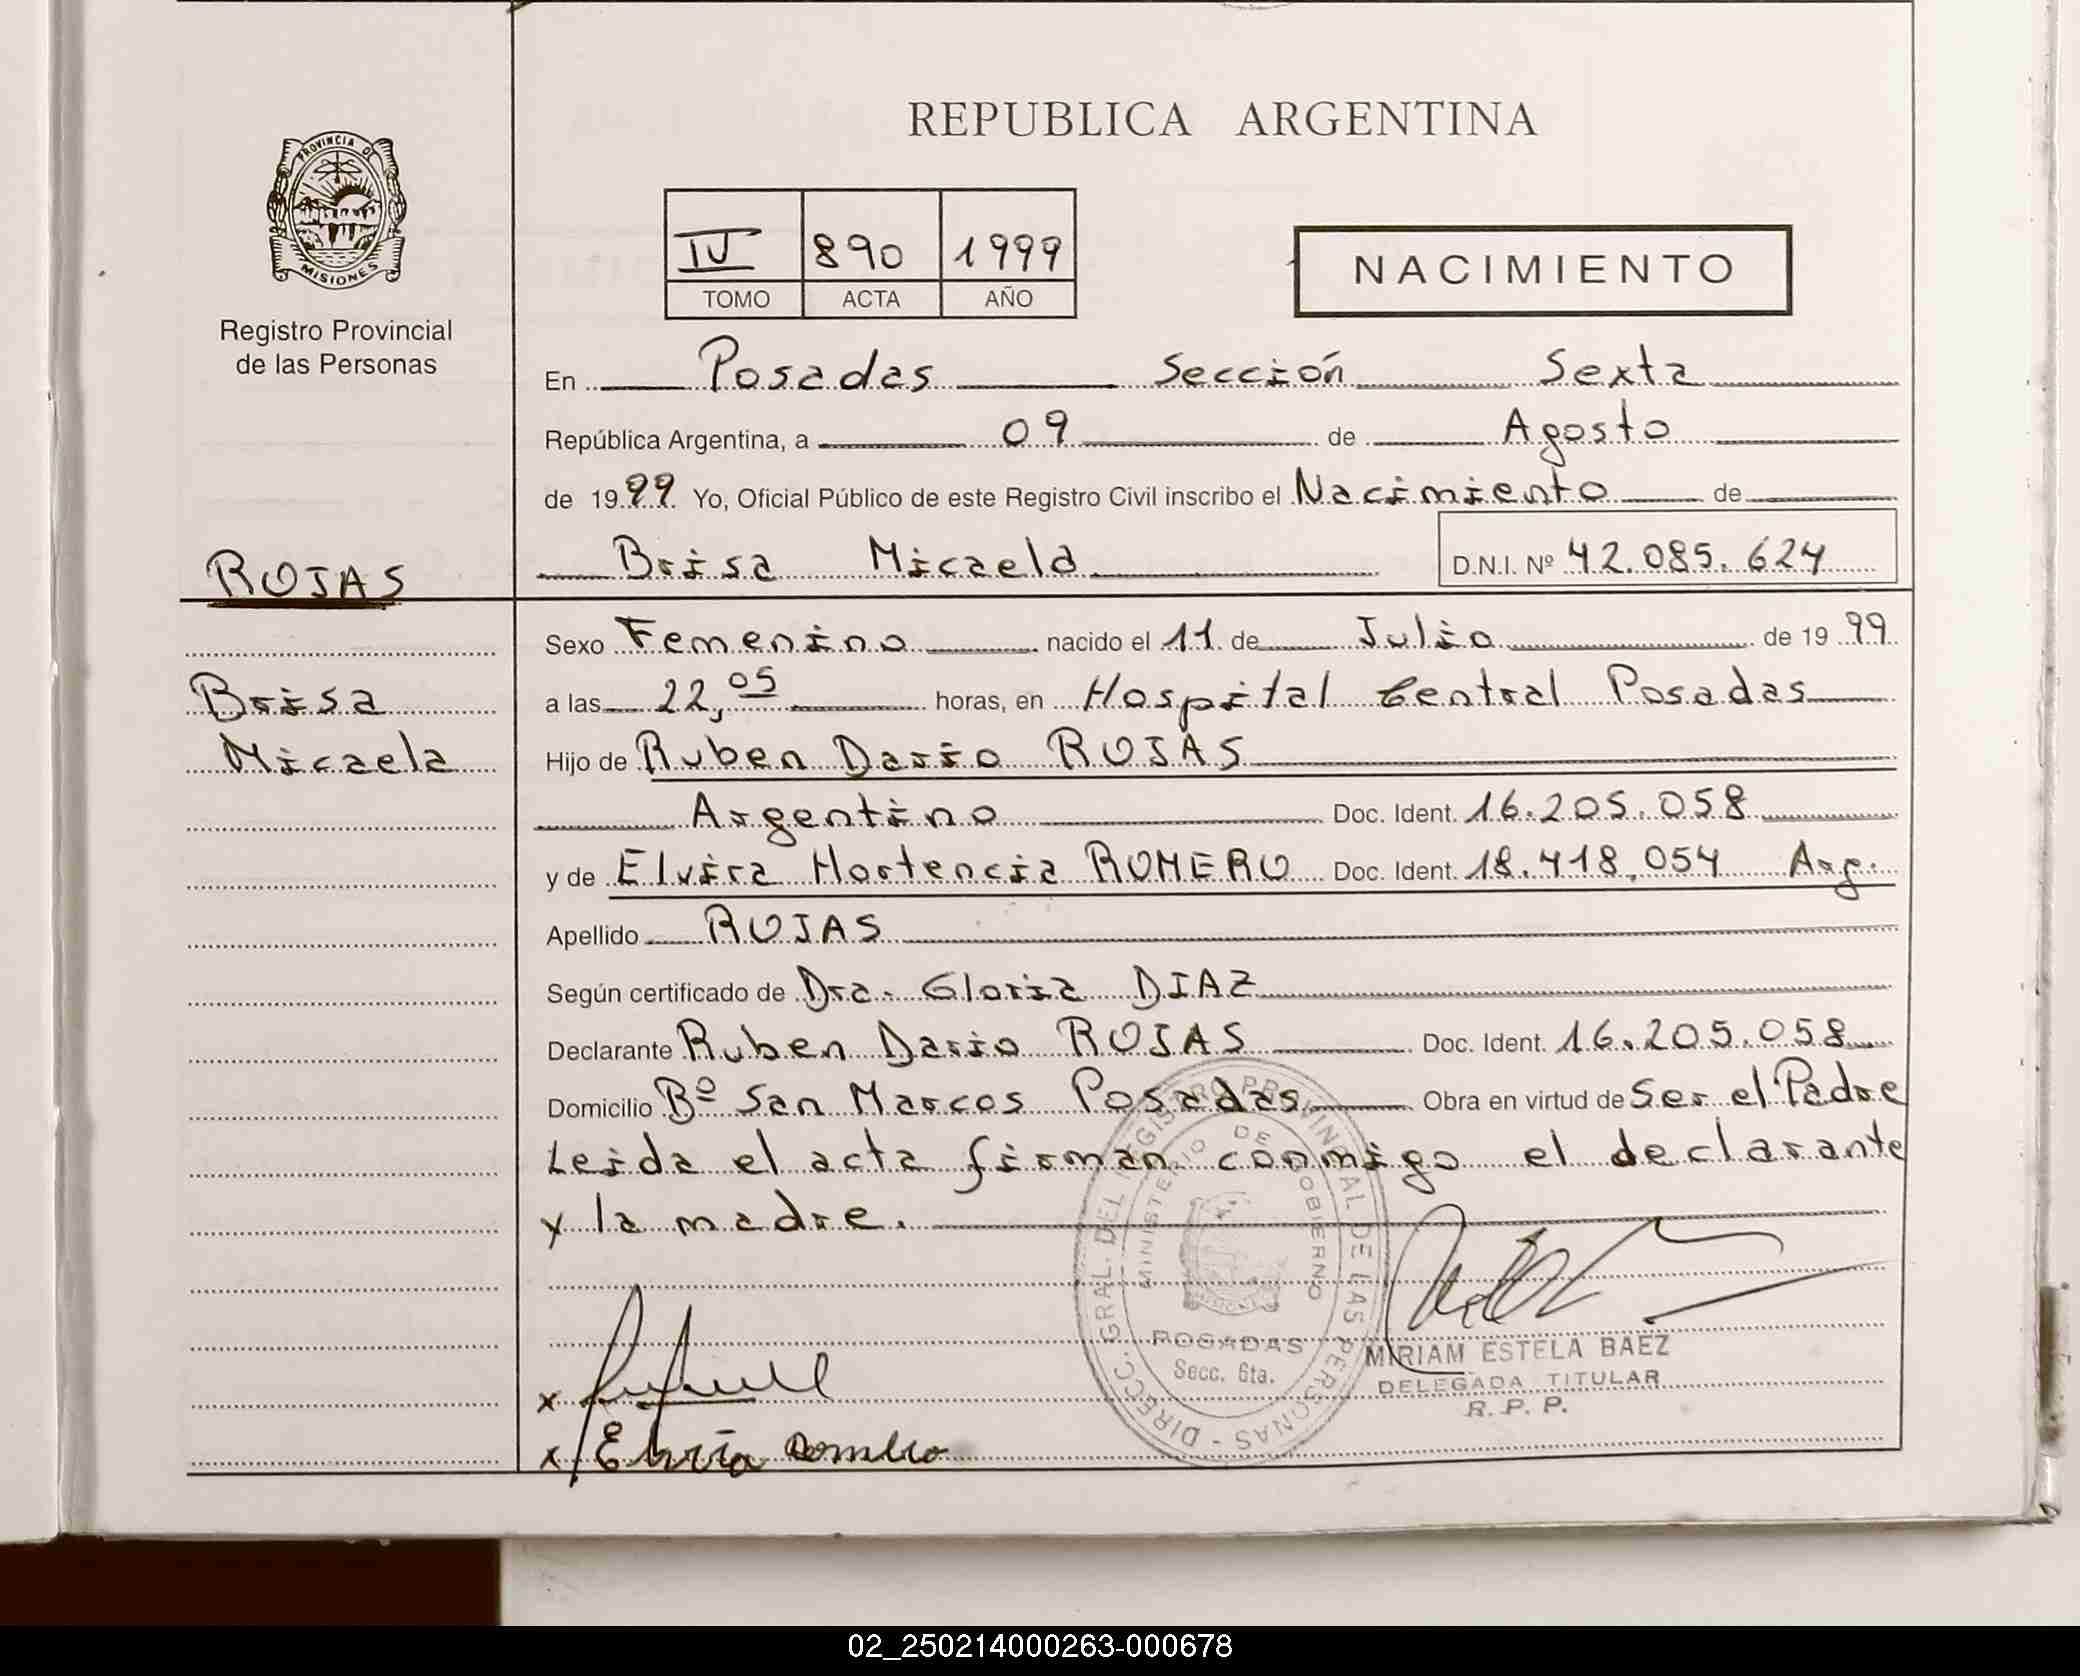 REPUBLICA ARGENTINA
PROVINCIA DE
MISIONES
Registro Provincial
de las Personas
IV 890 1999
TOMO ACTA AÑO
NACIMIENTO
En Posadas Sección Sexta
República Argentina, a 09 de Agosto
de 1999 Yo, Oficial Público de este Registro Civil inscribo el Nacimiento de
Brisa Micaela D.N.I. Nº 42.085.624
ROJAS
Brisa
Micaela
Sexo Femenino nacido el 11 de Julio de 1999
a las 22,05 horas, en Hospital Central Posadas
Hijo de Ruben Dario ROJAS
Argentino Doc. Ident. 16.205.058
y de Elvira Hortencia ROMERO Doc. Ident. 18.418.054 Arg.
Apellido ROJAS
Según certificado de Dra. Gloria DIAZ
Declarante Ruben Dario ROJAS Doc. Ident. 16.205.058
Domicilio Bº San Marcos Posadas Obra en virtud de Ser el Padre
Leida el acta firman conmigo el declarante
y la madre.
DIRECC. GRAL. DEL REGISTRO PROVINCIAL DE LAS PERSONAS -
MINISTERIO DE GOBIERNO
MISIONES
POSADAS
Secc. 6ta.
MIRIAM ESTELA BAEZ
DELEGADA TITULAR
R. P. P.
x
x Elvira Romero
02_250214000263-000678